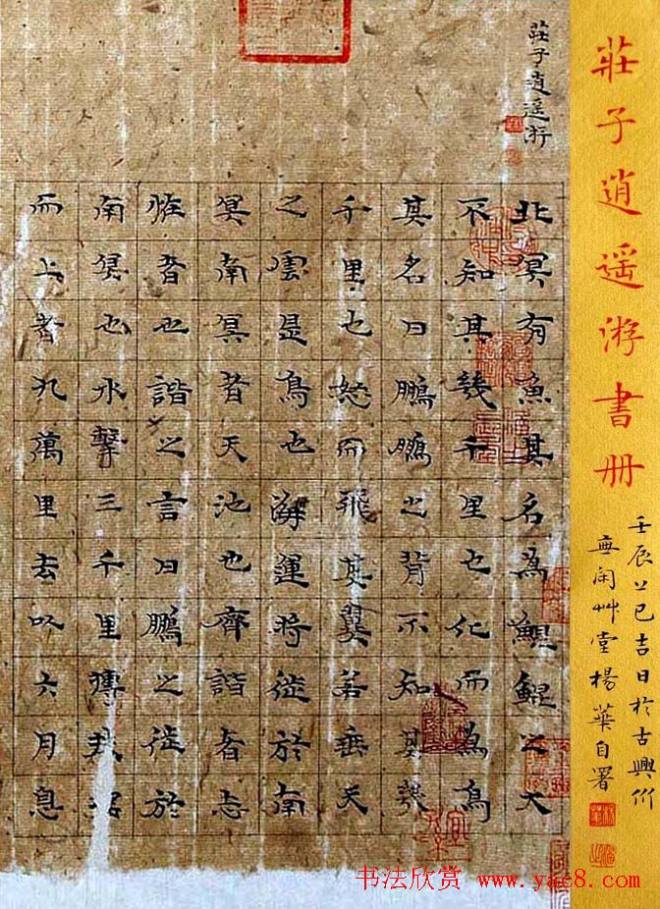 莊子逍遥游書册
壬辰上巳吉日於古興州
無闲艸堂楊華自署
莊子逍遥游
北冥有魚其名為鯤鯤之大
不知其幾千里也化而為鳥
其名曰鵬鵬之背不知其幾
千里也怒而飛其翼若垂天
之雲是鳥也海運時徙於南
冥南冥者天池也齊諧者志
恠者也諧之言曰鵬之徙於
南冥也水擊三千里摶扶摇
而上者九萬里去以六月息
书法欣赏 www.yac8.com